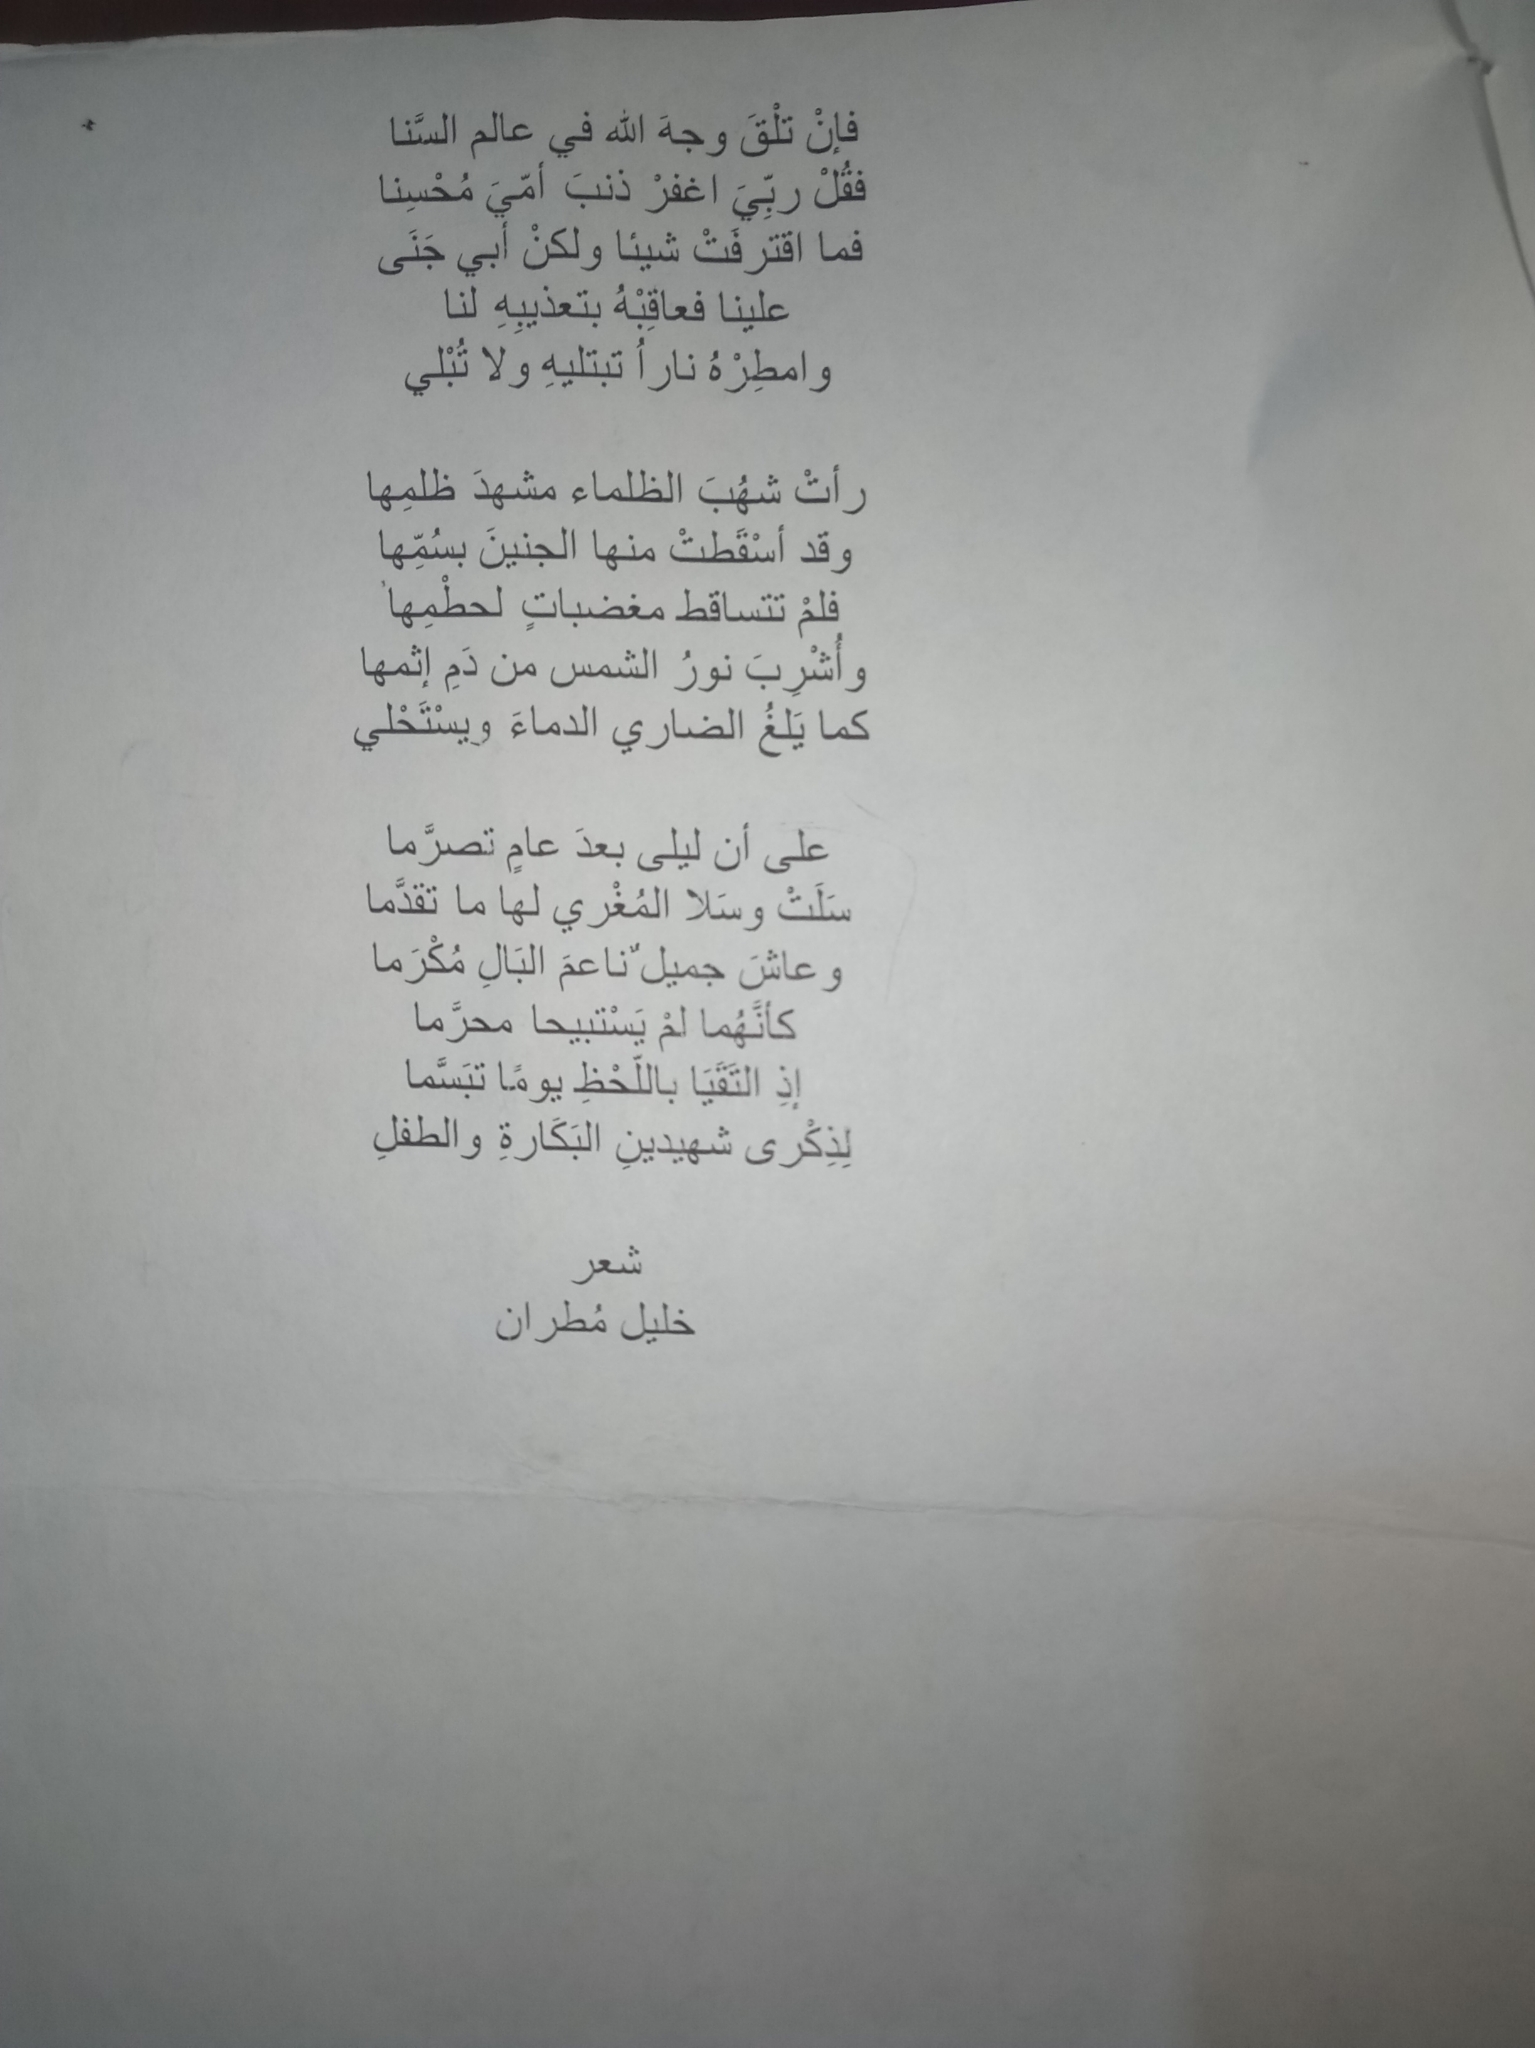 فإنْ تلْقَ وجهَ الله في عالم السَّنا
فقُلْ ربِّيَ اغفرْ ذنبَ أمّيَ مُحْسِنا
فما اقترفَتْ شيئا ولكنْ أبي جَنَى
علينا فعاقِبْهُ بتعذيبِهِ لنا
وامطِرْهُ ناراُ تبتليهِ ولا تُبْلي
رأتْ شهُبَ الظلماء مشهدَ ظلمِها
وقد أسْقَطتْ منها الجنينَ بسُمِّها
فلمْ تتساقط مغضباتٍ لحطْمِها
وأُشْرِبَ نورُ الشمس من دَمِ إثمها
كما يَلغُ الضاري الدماءَ ويسْتَحْلي
على أن ليلى بعدَ عامٍ تصرَّما
سَلَتْ وسَلا المُغْري لها ما تقدَّما
وعاشَ جميلٌ ناعمَ البَالِ مُكْرَما
كأنَّهُما لمْ يَسْتبيحا محرَّما
إذِ التَقَيَا باللّحْظِ يومًا تبَسَّما
لِذِكْرى شهيدينِ البَكَارةِ والطفلِ
شعر
خليل مُطران